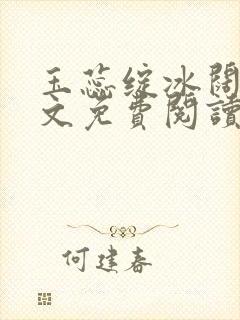 玉蕊綻冰闊
文免費閱讀
何建春